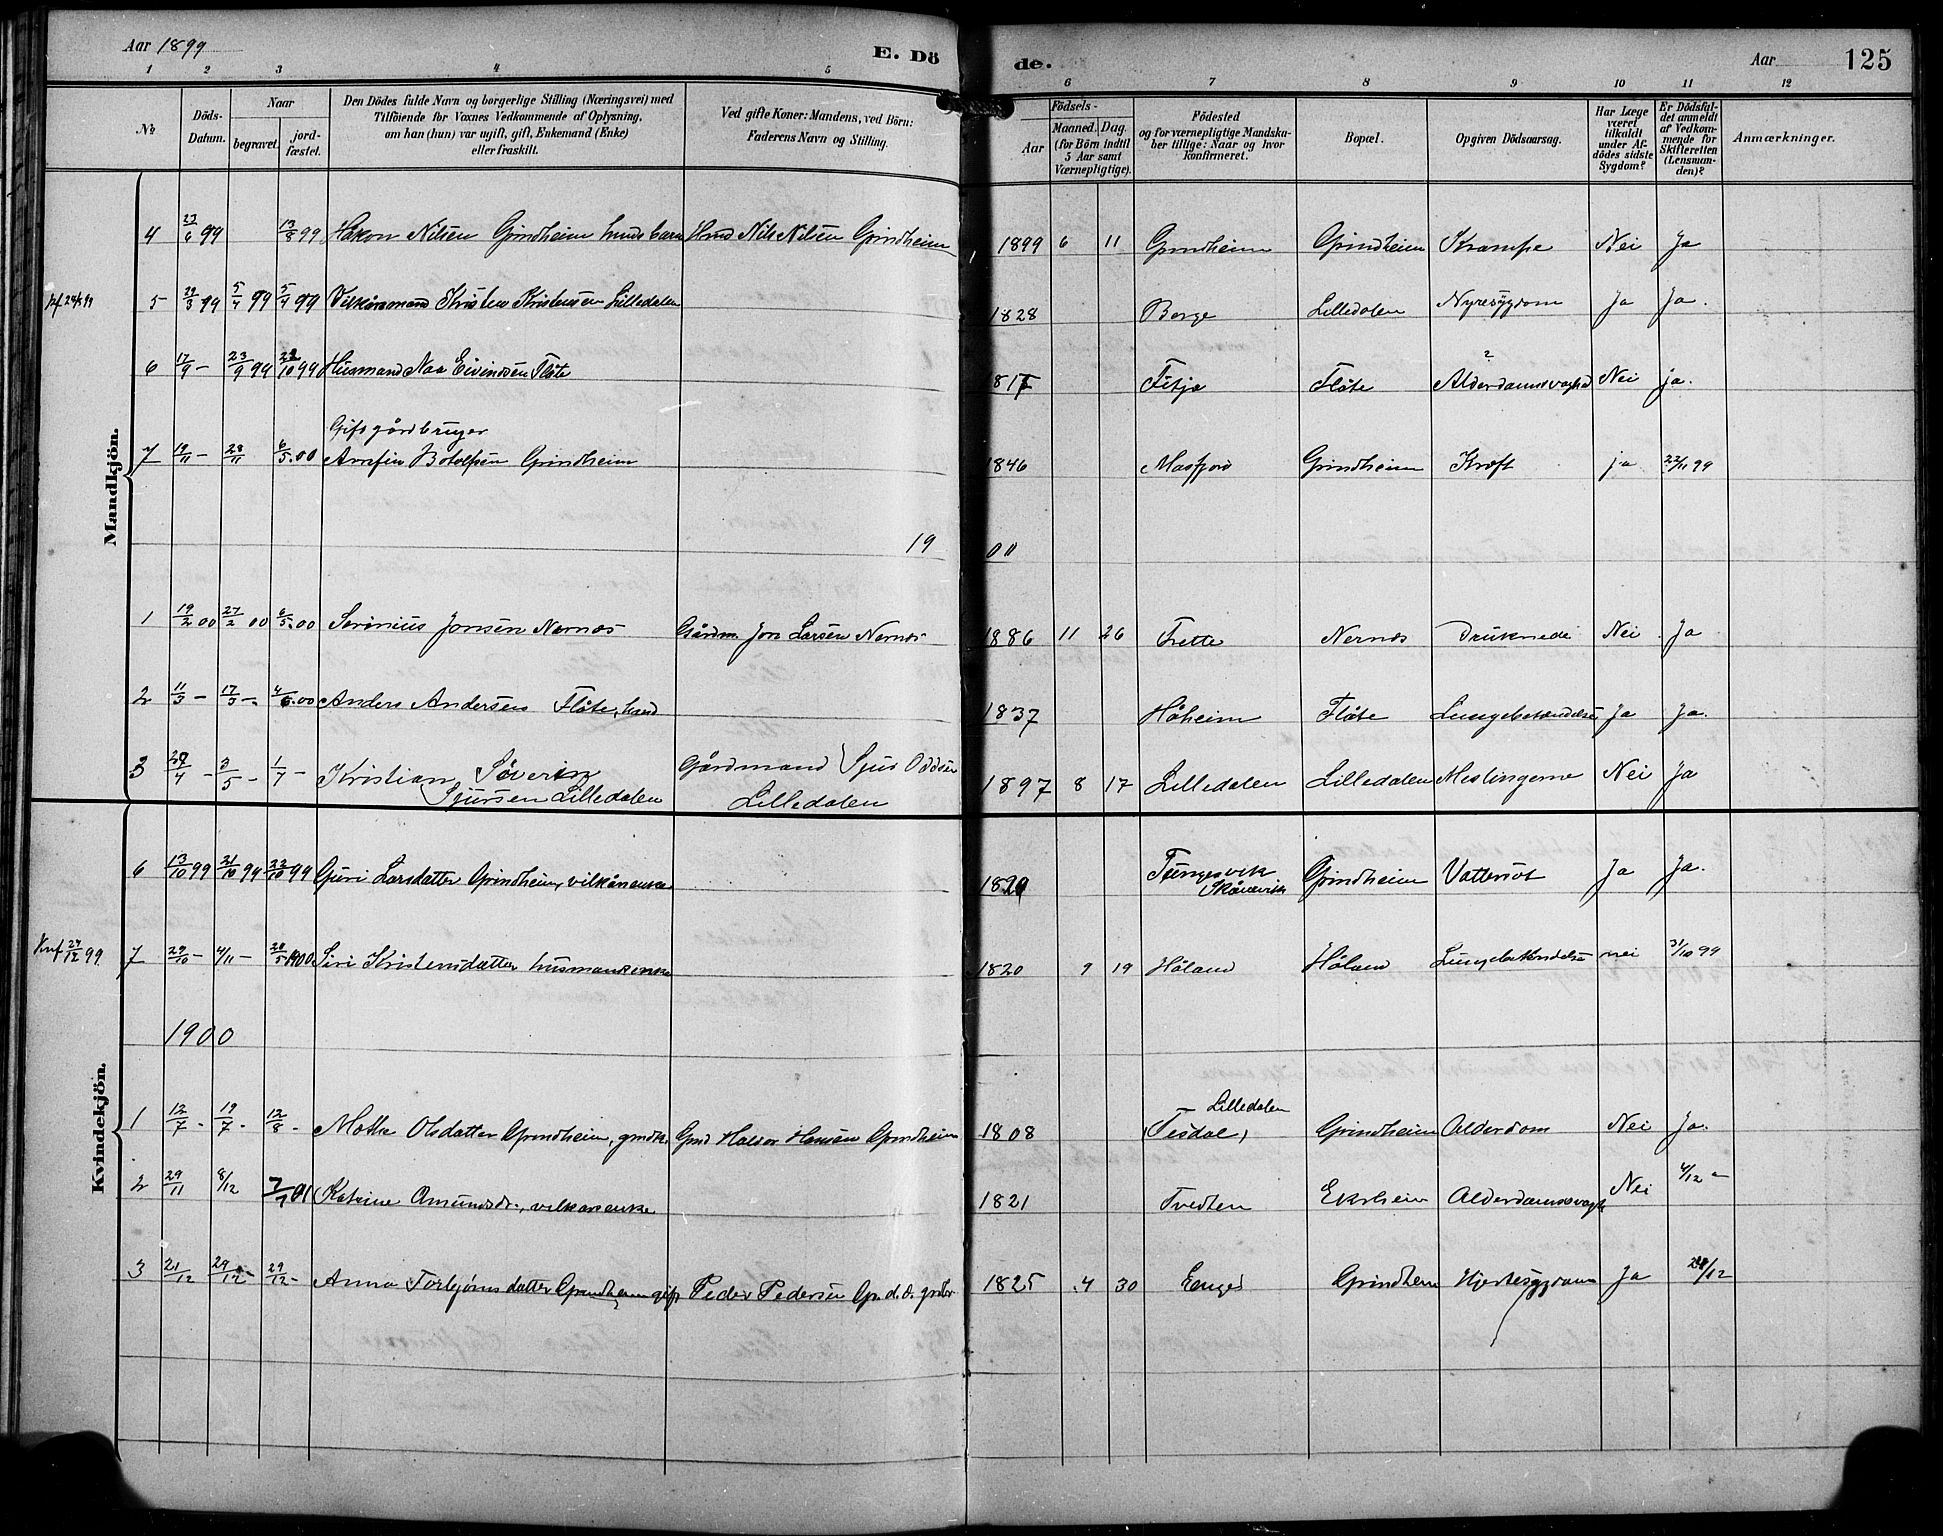 Aar 1899
E. Dö
de.
Aar
125
1 2 3 4 5 6 7 8 9 10 11 12
№
Döds-Datum.
Naar
begravet.
jord-fæstet.
Den Dödes fulde Navn og borgerlige Stilling (Næringsvei) med
Tilföiende for Voxnes Vedkommende af Oplysning,
om han (hun) var ugift, gift, Enkemand (Enke)
eller fraskilt.
Ved gifte Koner: Mandens, ved Börn:
Faderens Navn og Stilling.
Födsels-
Aar
Maaned. Dag.
(for Börn indtil
5 Aar samt
Værnepligtige).
Födested
og for værnepligtige Mandska-
ber tillige: Naar og hvor
konfirmeret.
Bopæl.
Opgiven Dödsaarsag.
Har Læge
været
tilkaldt
under Af-
dödes sidste
Sygdom?
Er Dödsfal-
det anmeldt
af Vedkom-
mende for
Skifteretten
(Lensman-
den)?
Anmærkninger.
Mandkjön.
4 23/6 99 13/8 99 Håkon Nilsen Grindheim husds barn Husd Nils Nilsen Grindheim 1899 6 11 Grindheim Grindheim Krampe Nei Ja
5 29/3 99 5/4 99 5/4 99 Vilkårsmand Kristen Kristensen Lilledalen 1828 Borge Lilledalen Nyresygdom Ja Ja.
6 17/9 - 23/9 99 22/10 99 Husmand Naa Eivindsen Flåte 1817 Fitja Flåte Alderdomssvaghed ? Nei ja.
Gift gårdbruger
7 19/11 - 28/11 6/5.00 Arnfin Botolfsen Grindheim 1846 Masfjord Grindheim Kræft ja 22/11 99
19 00
1 19/2 00 27/2 00 6/5.00 Sørinius Jonsen Nernæs Gårdm. Jon Larsen Nernæs 1886 11 26 Frette Nernæs Druknede Nei Ja
2 11/3 - 17/3 -. 4/6.00 Anders Andersen Flåte, husd 1837 Håheim Flåte Lungebetændelse Ja Ja.
3 28/4 - 3/5 - 1/7 - Kristian Søverin Gårdmand Sjur Oddsen
Sjursen Lilledalen Lilledalen 1897 8 17 Lilledalen Lilledalen Meslingerne Nei Ja
Kvindekjön.
6 13/10 99 21/10 99 22/10 99 Guri Larsdatter Grindheim, vilkårsenke Tungesvik
Skånevik Grindheim Vattersot Ja Ja.
7 29/10 - 4/11 - 20/5 1900 Siri Kristensdatter husmandsenke 1820 9 19 Håland Håland Lungebetændelse nei 31/10 99
1900
1 12/7 - 19/7 - 12/8 - Olsdatter Grindheim, Halvor Hansen Grindheim 1808 Lilledalen
(Tesdal) Grindheim Alderdom Nei Ja.
2 29/11 8/12 7/7 01 Katrine Amundsdr., vilkårsenke 1821 Tvedten Ekrheim Alderdomssvagh Nei 4/12 -
3 21/12 29/12 - 29/12 - Anna Torbjørnsdatter Grindheim gift Peder Pedersen 1825 4 30 Enges Grindheim Hjertesygdom Ja 28/12